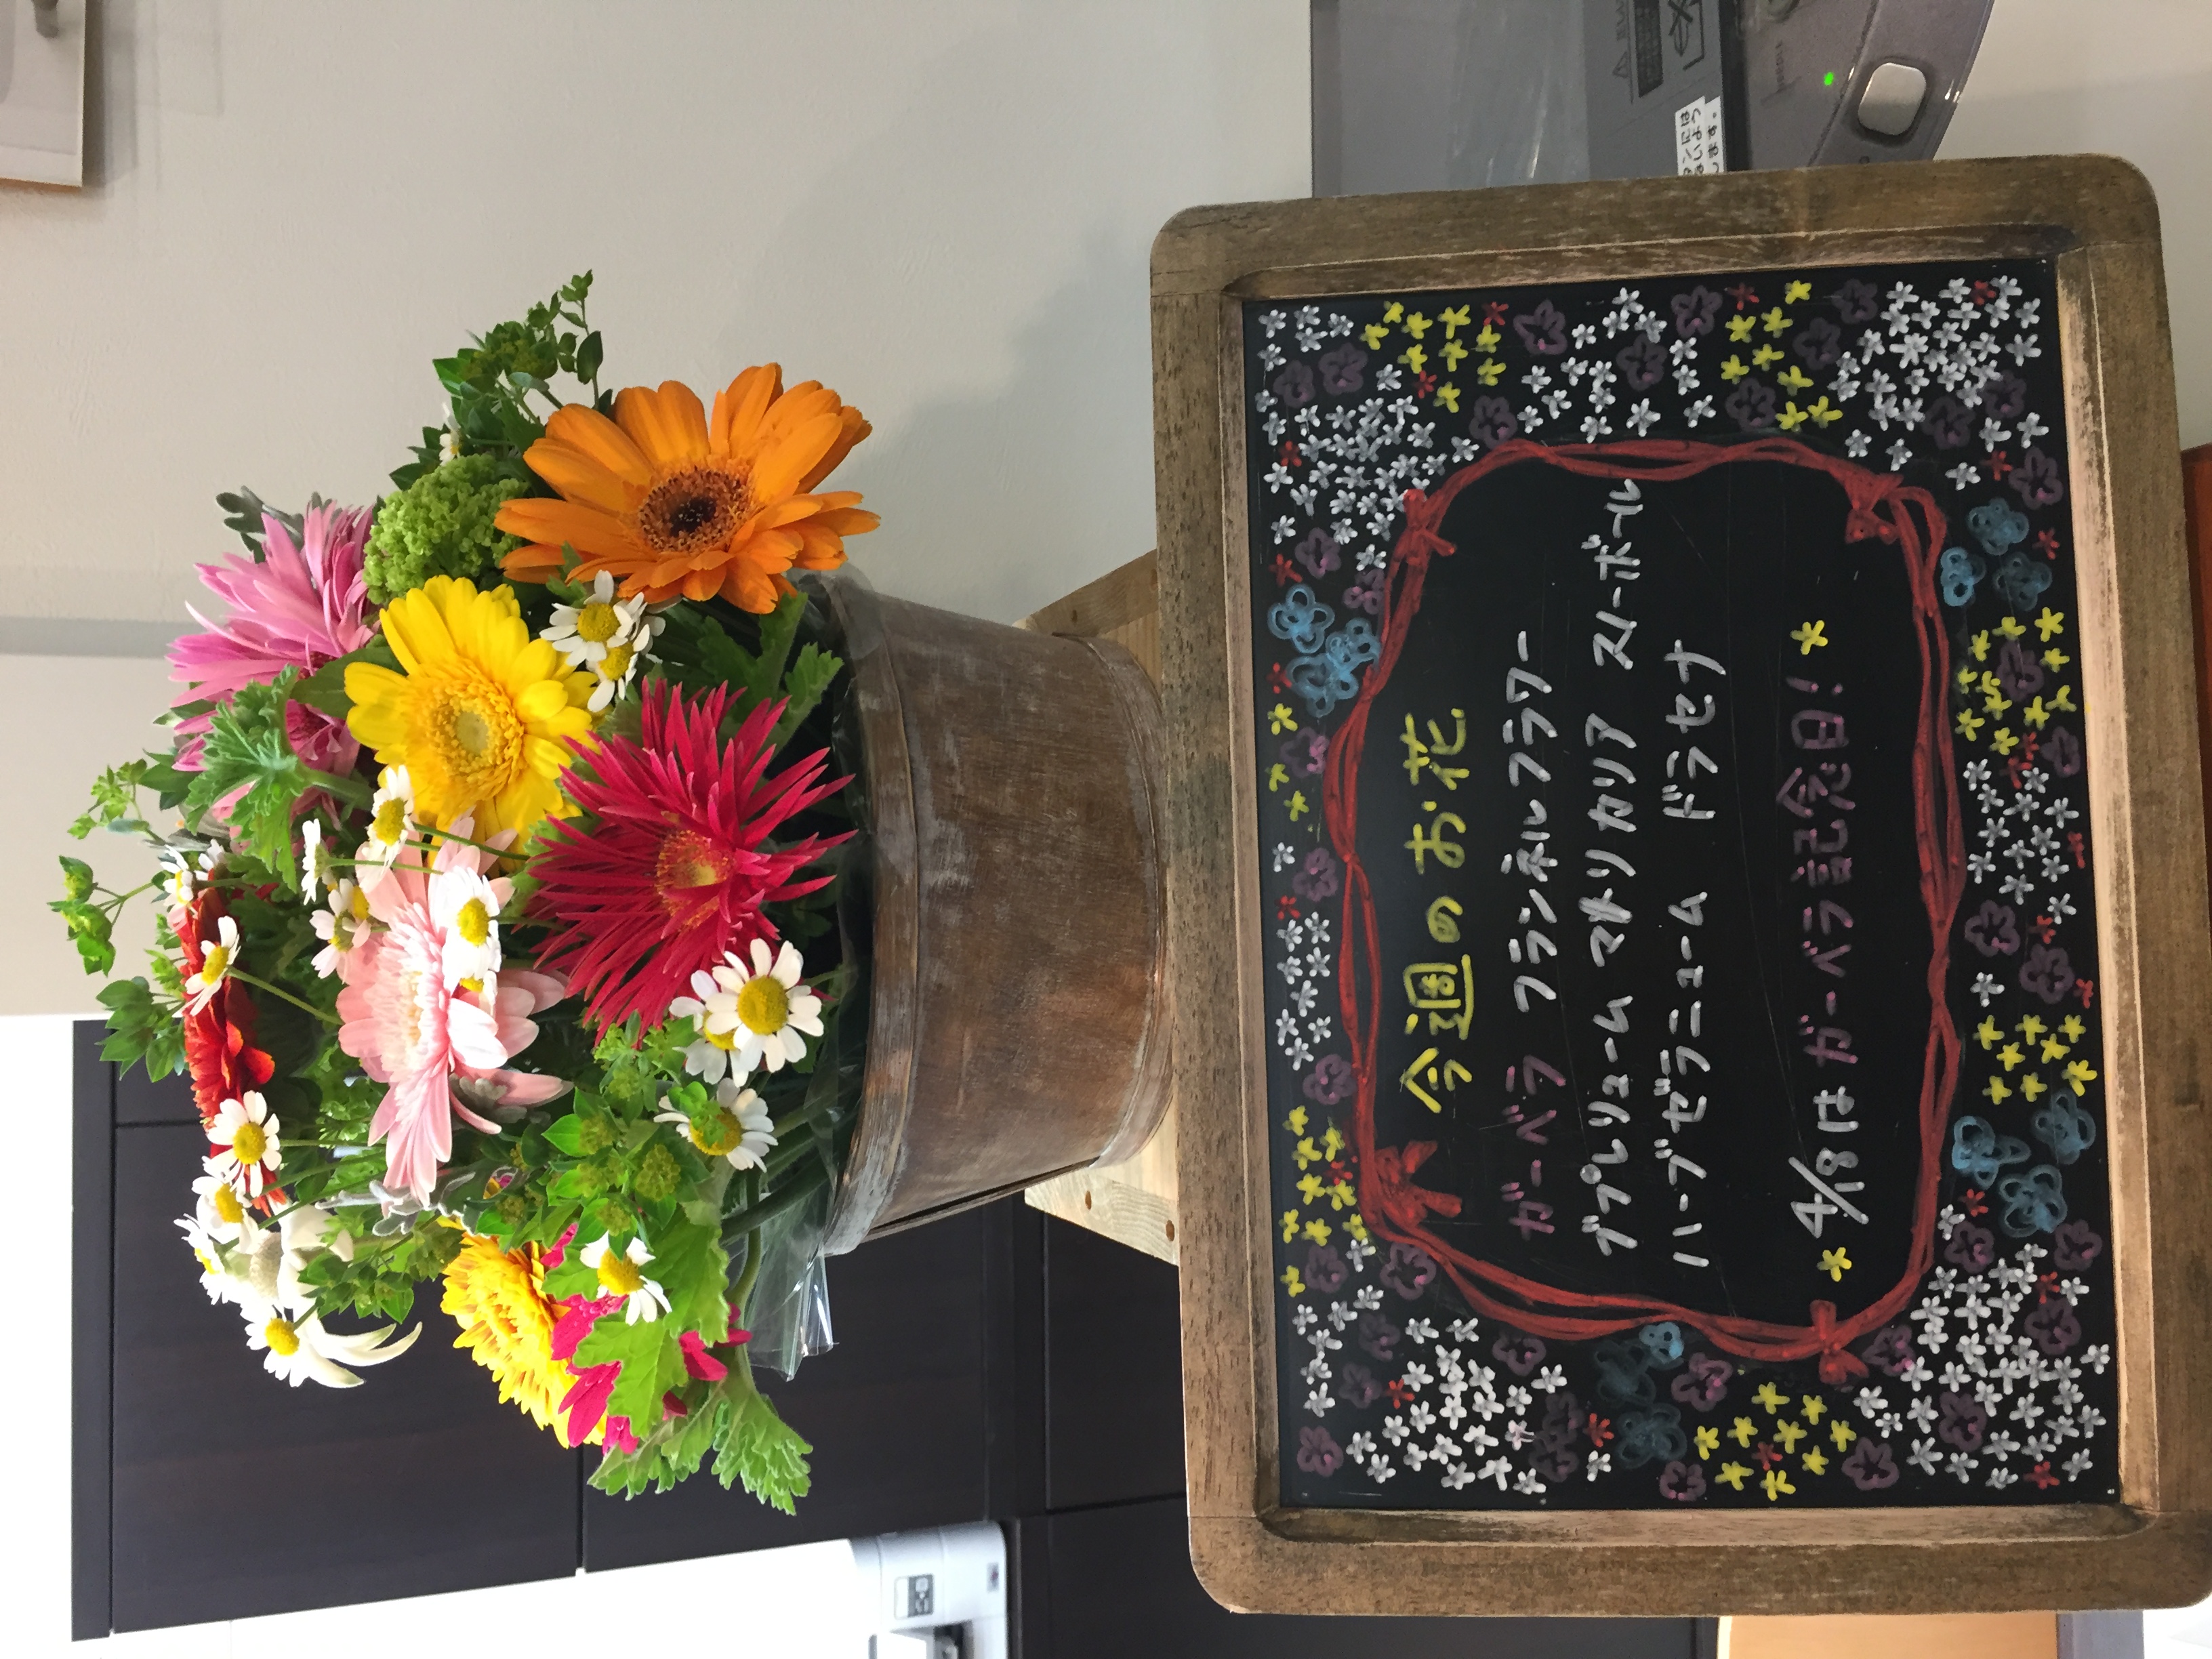 今週のお花
ガーベラ フランネルフラワー
ブプレリューム マトリカリア スノーボール
ハーブゼラニューム ドラセナ
4/18は ガーベラ記念日!